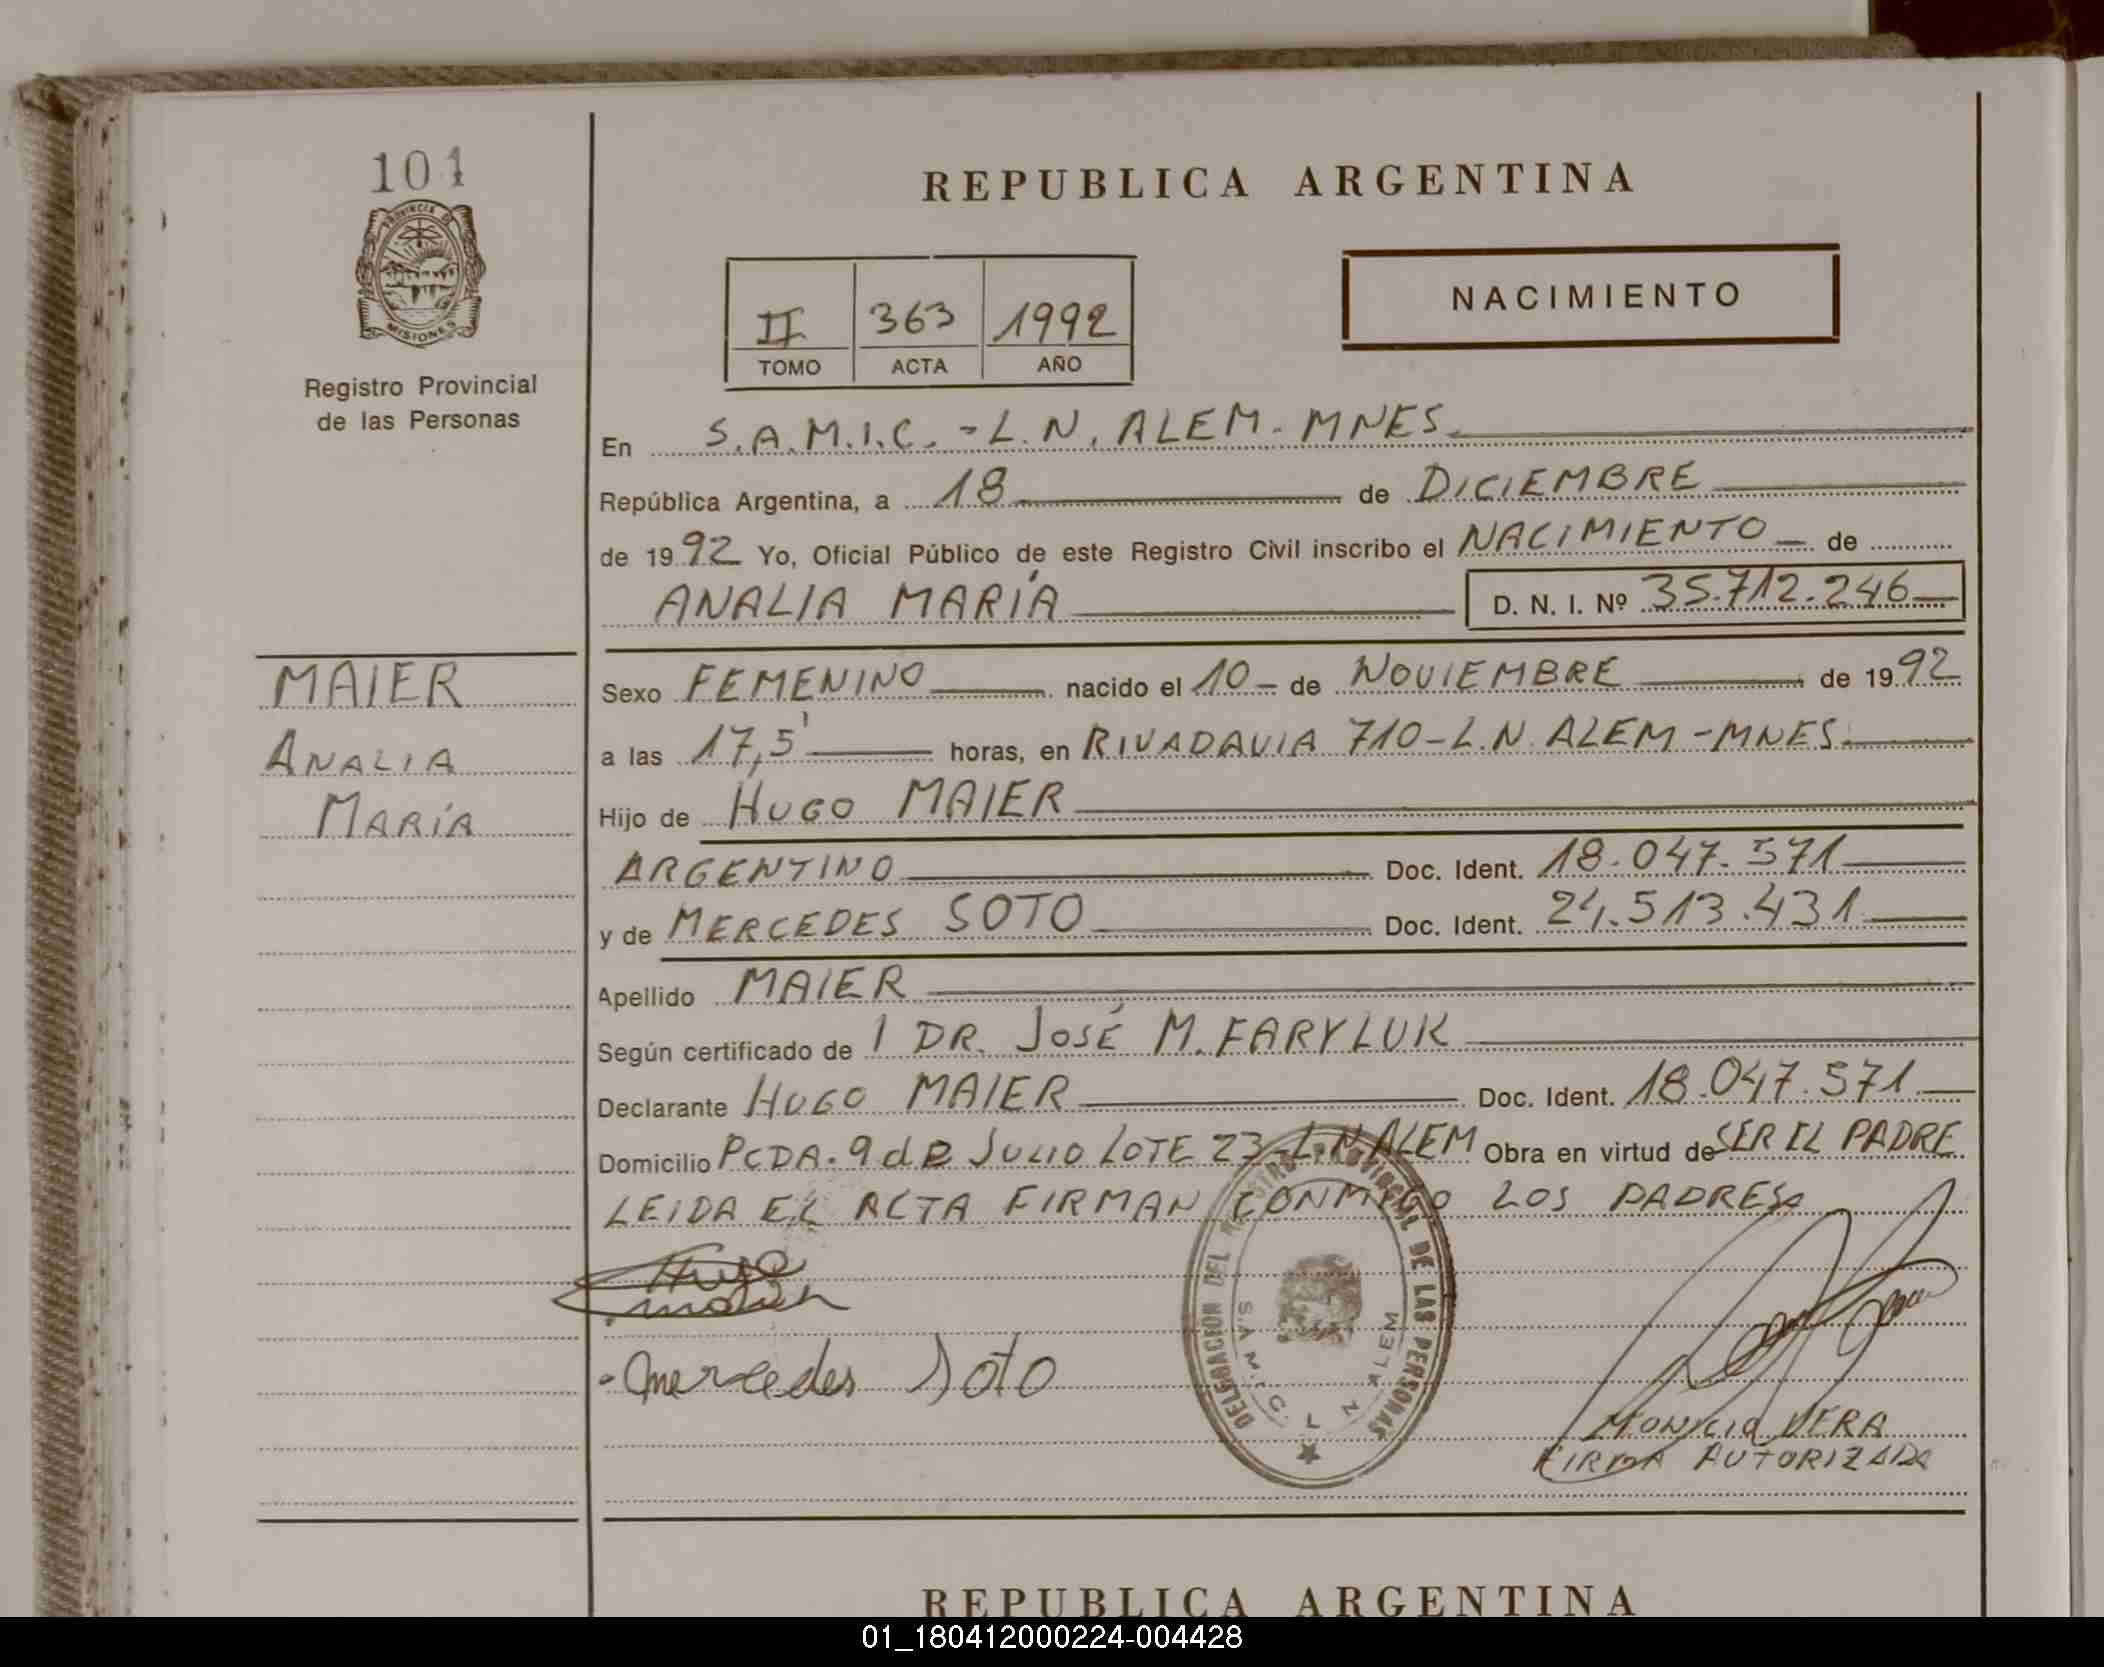 101
PROVINCIA DE
MISIONES
Registro Provincial
de las Personas
REPUBLICA ARGENTINA
II 363 1992
TOMO ACTA AÑO
NACIMIENTO
En S.A.M.I.C. - L.N. ALEM - MNES
República Argentina, a 18 de DICIEMBRE
de 1992 Yo, Oficial Público de este Registro Civil inscribo el NACIMIENTO de
ANALIA MARÍA D. N. I. Nº 35.712.246
MAIER
ANALIA
MARÍA
Sexo FEMENINO nacido el 10 de NOVIEMBRE de 1992
a las 17,5' horas, en RIVADAVIA 710 - L.N. ALEM - MNES.
Hijo de HUGO MAIER
ARGENTINO Doc. Ident. 18.047.571
y de MERCEDES SOTO Doc. Ident. 24.513.431
Apellido MAIER
Según certificado de 1 DR. JOSÉ M. FARYLUK
Declarante HUGO MAIER Doc. Ident. 18.047.571
Domicilio PCDA. 9 de JULIO LOTE 23 - L.N ALEM Obra en virtud de SER EL PADRE
LEIDA EL ACTA FIRMAN CONMIGO LOS PADRES
Hugo
maier
Mercedes Soto
DELEGACION DEL REGISTRO PROVINCIAL DE LAS PERSONAS
S.A.M.I.C. L N ALEM
MONICA VERA
FIRMA AUTORIZADA
REPUBLICA ARGENTINA
01_180412000224-004428